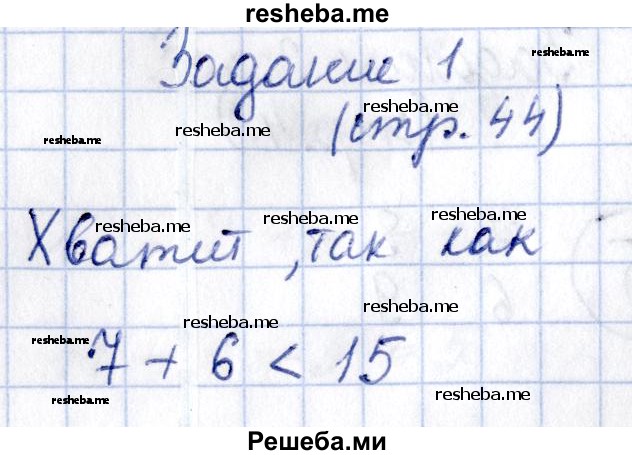 resheba.me
Задание 1
resheba.me
resheba.me
resheba.me
resheba.me
(стр. 44)
resheba.me
resheba.me
resheba.me
Хватит, так как
resheba.me
resheba.me
resheba.me
7 + 6 < 15
resheba.me
resheba.me
Решеба.ми